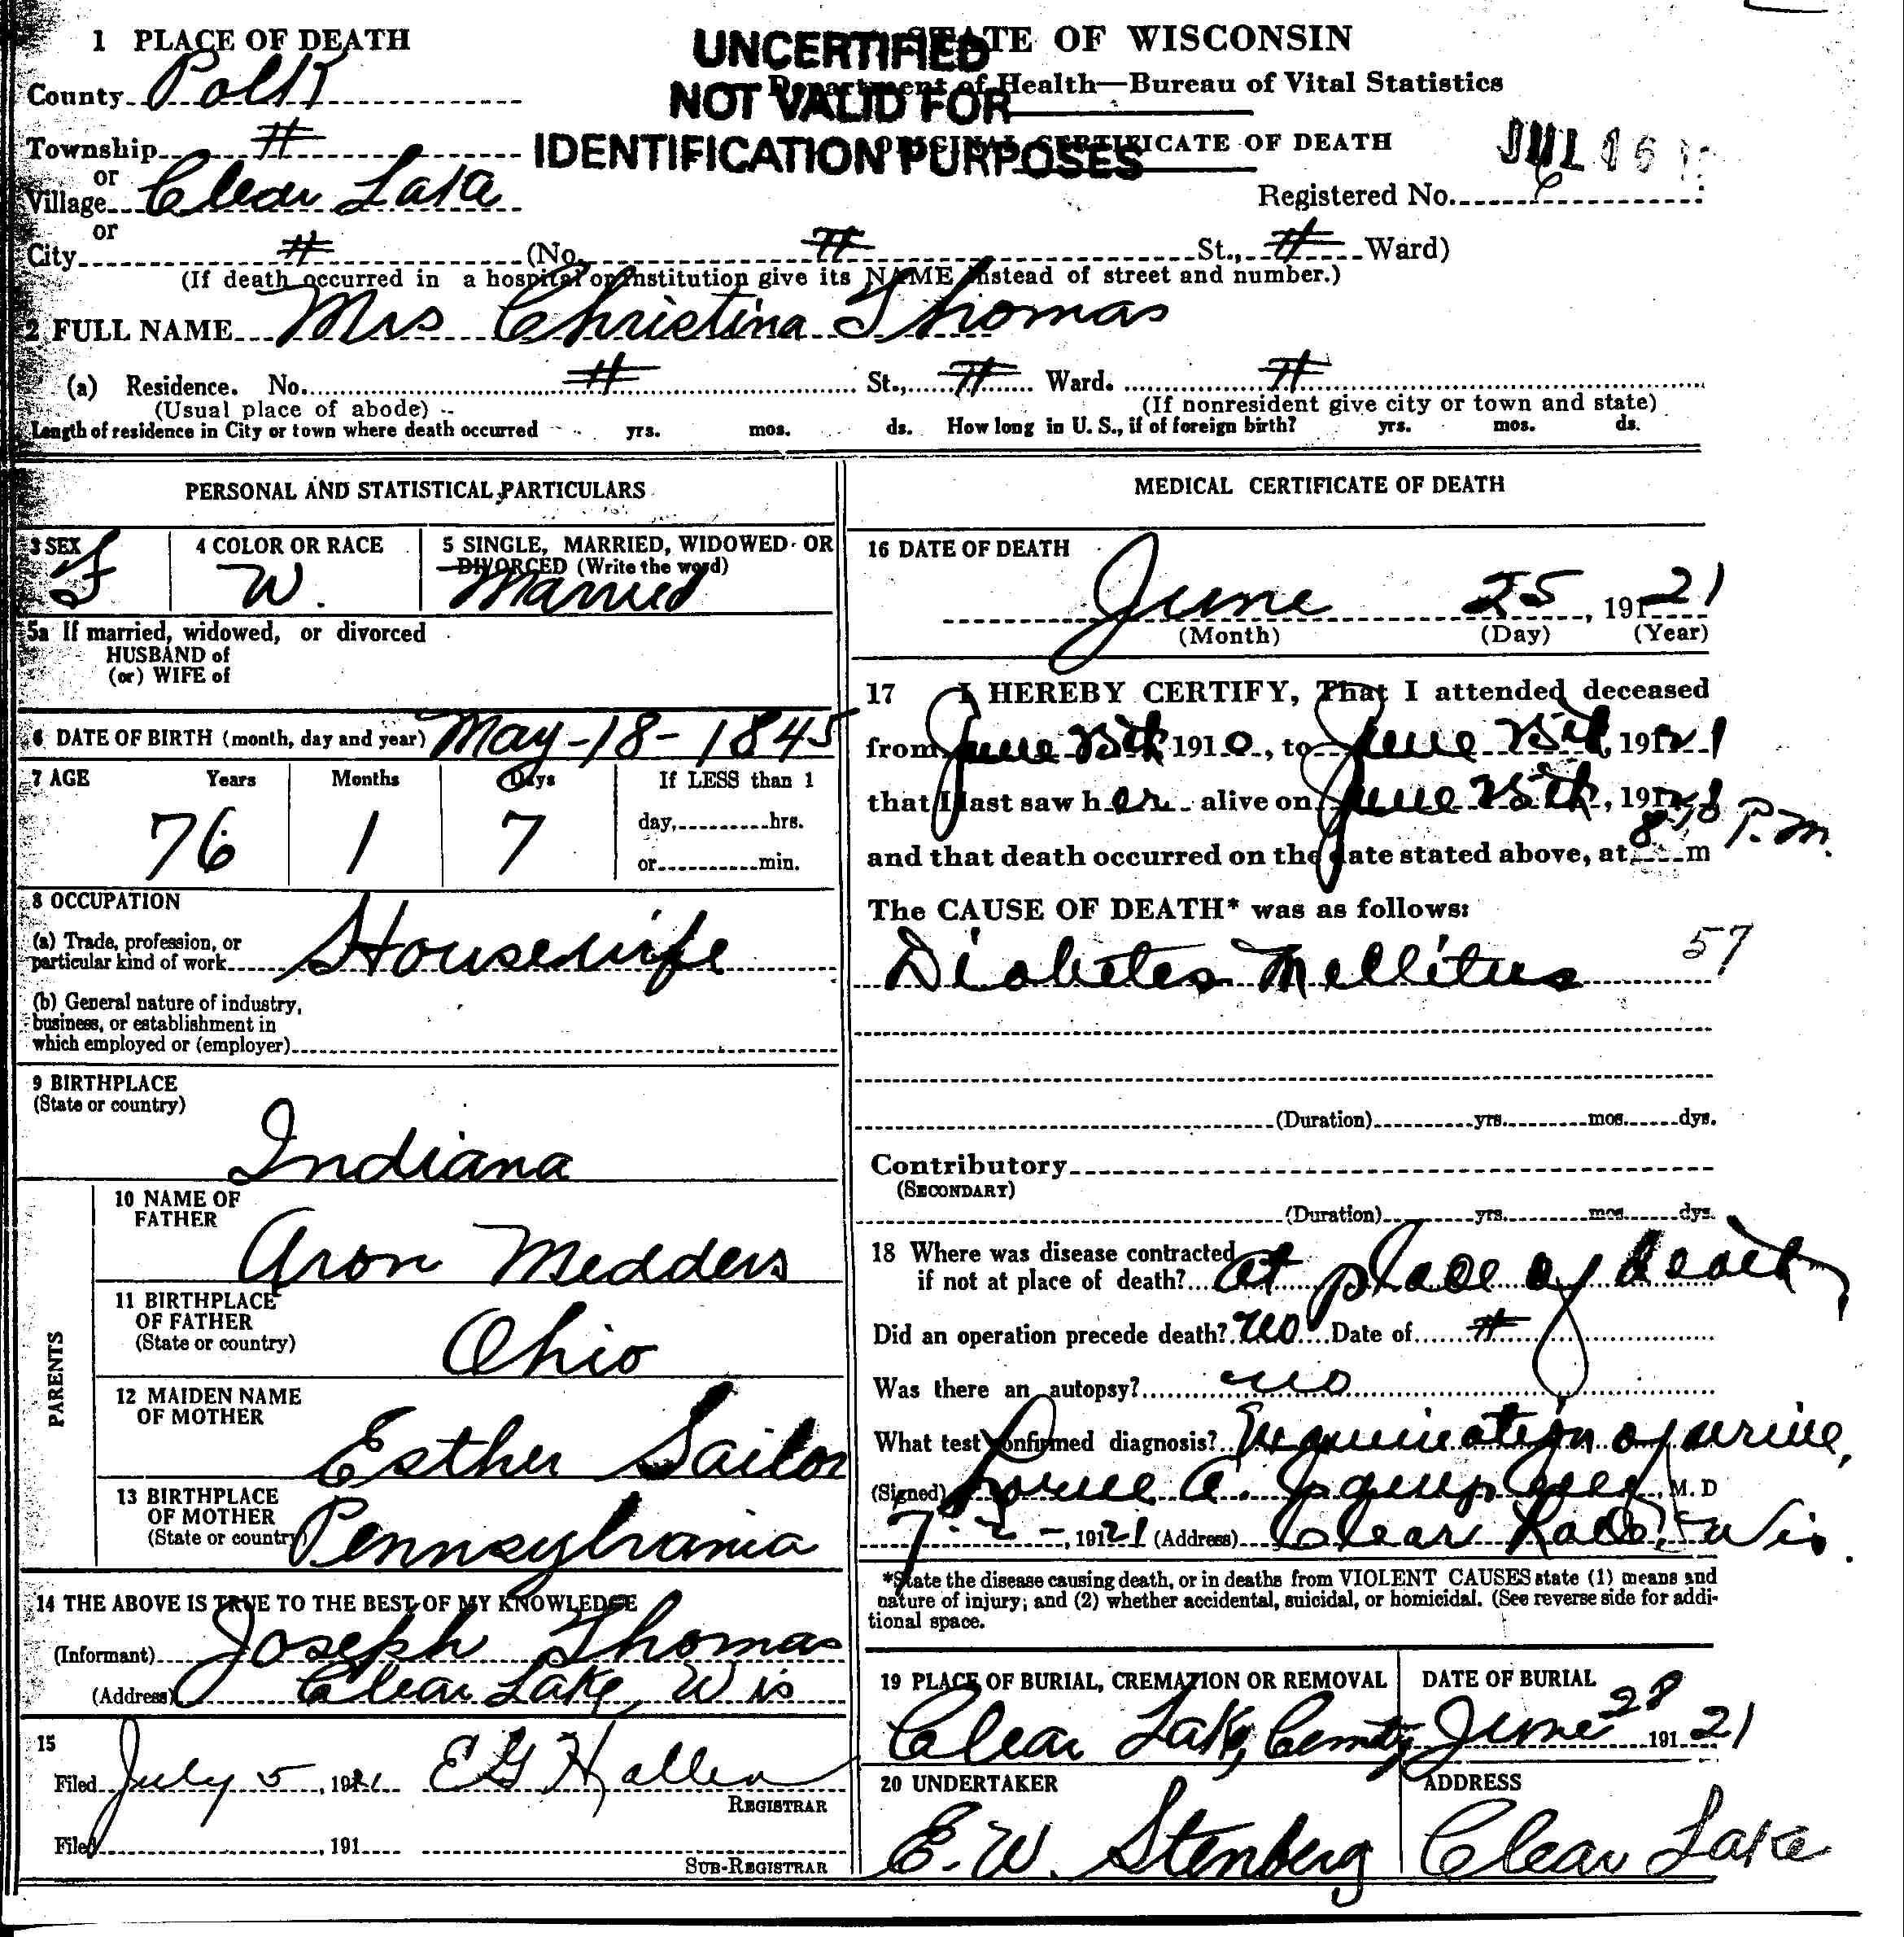 1 PLACE OF DEATH
County Polk
Township #
or
Village Clear Lake
or
City # (No. # St., # Ward)
(If death occurred in a hospital or institution give its NAME instead of street and number.)
UNCERTIFIED
NOT VALID FOR
IDENTIFICATION PURPOSES
STATE OF WISCONSIN
Department of Health—Bureau of Vital Statistics
ORIGINAL CERTIFICATE OF DEATH
JUL 16
Registered No.
2 FULL NAME Mrs Christina Thomas
(a) Residence. No. # St., # Ward. #
(Usual place of abode)
(If nonresident give city or town and state)
Length of residence in City or town where death occurred yrs. mos. ds. How long in U. S., if of foreign birth? yrs. mos. ds.
PERSONAL AND STATISTICAL PARTICULARS
3 SEX
F
4 COLOR OR RACE
W.
5 SINGLE, MARRIED, WIDOWED OR
DIVORCED (Write the word)
Married
5a If married, widowed, or divorced
HUSBAND of
(or) WIFE of
6 DATE OF BIRTH (month, day and year) May-18-1845
7 AGE Years Months Days If LESS than 1
76 1 7
day, hrs.
or min.
8 OCCUPATION
(a) Trade, profession, or
particular kind of work Housewife
(b) General nature of industry,
business, or establishment in
which employed or (employer)
9 BIRTHPLACE
(State or country)
Indiana
PARENTS
10 NAME OF
FATHER
Aron Medders
11 BIRTHPLACE
OF FATHER
(State or country)
Ohio
12 MAIDEN NAME
OF MOTHER
Esther Sailor
13 BIRTHPLACE
OF MOTHER
(State or country)
Pennsylvania
14 THE ABOVE IS TRUE TO THE BEST OF MY KNOWLEDGE
(Informant) Joseph Thomas
(Address) Clear Lake, Wis
15
Filed July 5, 1921 E G Hallen
REGISTRAR
Filed , 191
SUB-REGISTRAR
MEDICAL CERTIFICATE OF DEATH
16 DATE OF DEATH
June 25, 191 21
(Month) (Day) (Year)
17 I HEREBY CERTIFY, That I attended deceased
from June 25th 1910, to June 25th, 1921
that I last saw her alive on June 25th, 1921
and that death occurred on the date stated above, at 8 m P.m.
The CAUSE OF DEATH* was as follows:
Diabetes Mellitus 57
(Duration) yrs. mos. dys.
Contributory
(SECONDART)
(Duration) yrs. mos. dys.
18 Where was disease contracted
if not at place of death? at place of death
Did an operation precede death? no Date of #
Was there an autopsy? no
What test confirmed diagnosis? Examination of urine,
(Signed) A. , M. D
7-2-, 191 21 (Address) Clear Lake, Wis.
*State the disease causing death, or in deaths from VIOLENT CAUSES state (1) means and
nature of injury; and (2) whether accidental, suicidal, or homicidal. (See reverse side for addi-
tional space.
19 PLACE OF BURIAL, CREMATION OR REMOVAL
Clear Lake, Cemty
DATE OF BURIAL
June 28 191 21
20 UNDERTAKER
E. W. Stenberg
ADDRESS
Clear Lake